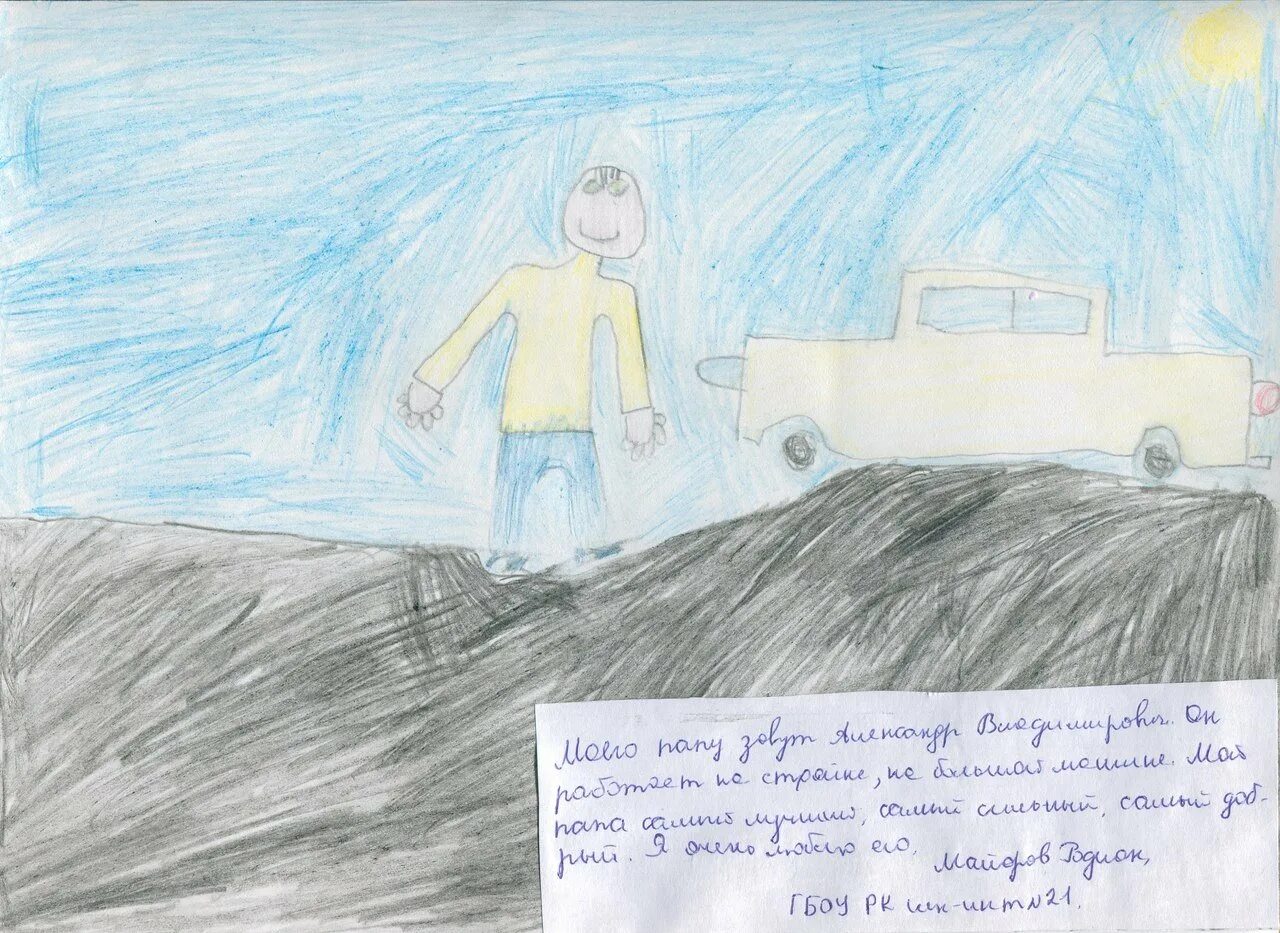 Моего папу зовут Александр Владимирович. Он
работает на стройке, на большой машине. Мой
папа самый лучший, самый сильный, самый доб-
рый. Я очень люблю его.
Майоров
ГБОУ РК шк-инт №21.